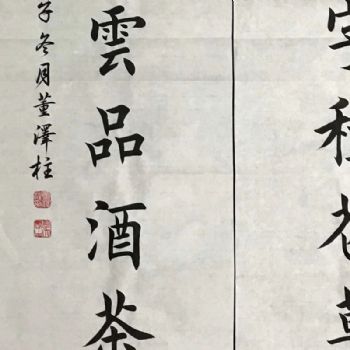 花草
雲品酒茶
子冬月董澤柱